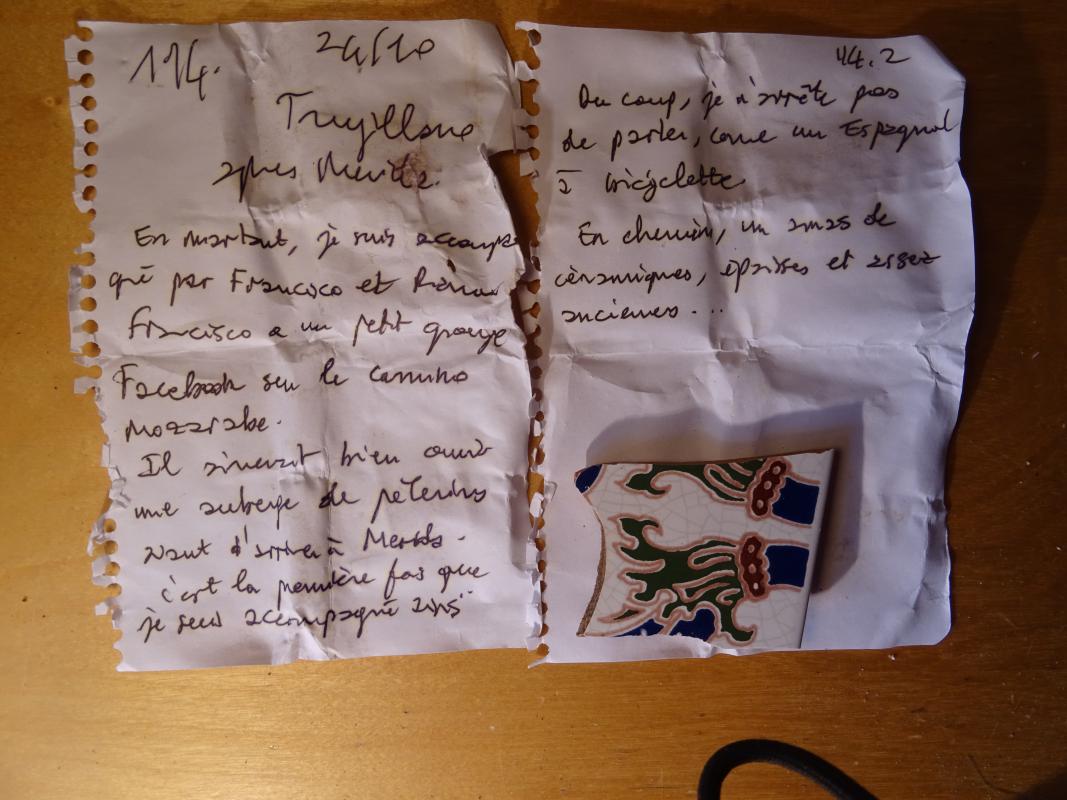 24/10
Trujillano
apres Merida.
En partant, je suis accompa
gné par Francisco et
Francisco a un petit groupe
Facebook sur le camino
mozarabe.
Il aimerait bien ouvrir
une auberge de pélerins
avant d'arriver à Merida.
c'est la première fois que
je suis accompagné ainsi
44.2
Du coup, je n'arrête pas
de parler, come un Espagnol
à bicyclette
En chemin, un amas de
céramiques, éparses et assez
anciennes...